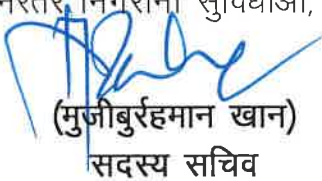 निरंतर निगरानी सुविधाओं,
(मुजीबुर्रहमान खान)
सदस्य सचिव